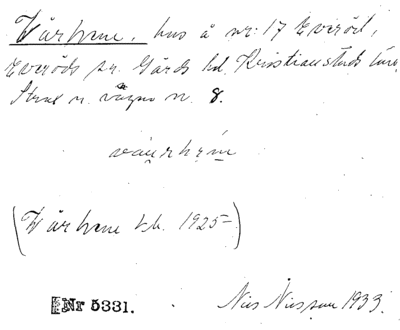 Vårhem. hus å nr: 17 Everöd,
Everöds sn. Gärds hd. Kristianstads län.
Strax n. vägen n. 8.
(Vårhem kb. 1925-)
Nr 5331.
Nils Nilsson 1933.